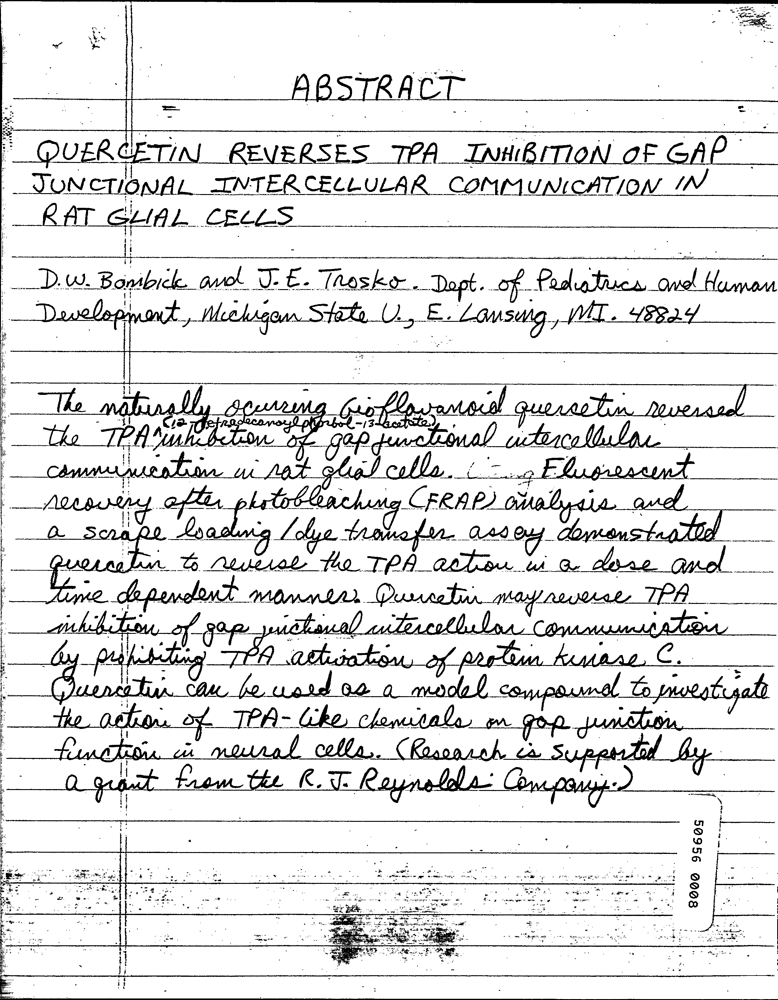 ABSTRACT
QUERCETIN REVERSES TPA INHIBITION OF GAP
JUNCTIONAL INTERCELLULAR COMMUNICATION IN
RAT GLIAL CELLS
D.W. Bombick and J.E. Trosko. Dept. of Pediatrics and Human
Development, Michigan State U., E. Lansing, MI. 48824
The naturally ocurring bioflavanoid quercetin reversed
(12-Tetradecanoylphorbol-13-acetate)
the TPA inhibition of gap junctional intercellular
communication in rat glial cells. Fluorescent
recovery after photobleaching (FRAP) analysis and
a scrape loading/dye transfer assay demonstrated
quercetin to reverse the TPA action in a dose and
time dependent manner. Quercetin may reverse TPA
inhibition of gap junctional intercellular communication
by prohibiting TPA activation of protein kinase C.
Quercetin can be used as a model compound to investigate
the action of TPA-like chemicals on gap junction
function in neural cells. (Research is supported by
a grant from the R.J. Reynolds Company.)
50956 0008